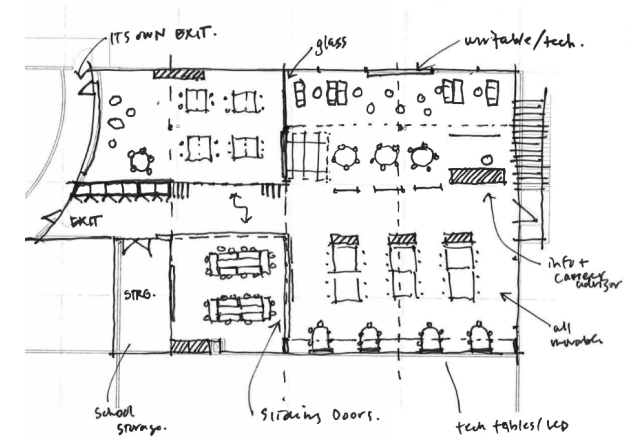 ITS OWN EXIT.
glass
writable/tech.
EXIT
info +
career
advisor
STRG.
all
movable
school
storage.
Sliding Doors.
tech tables/LED